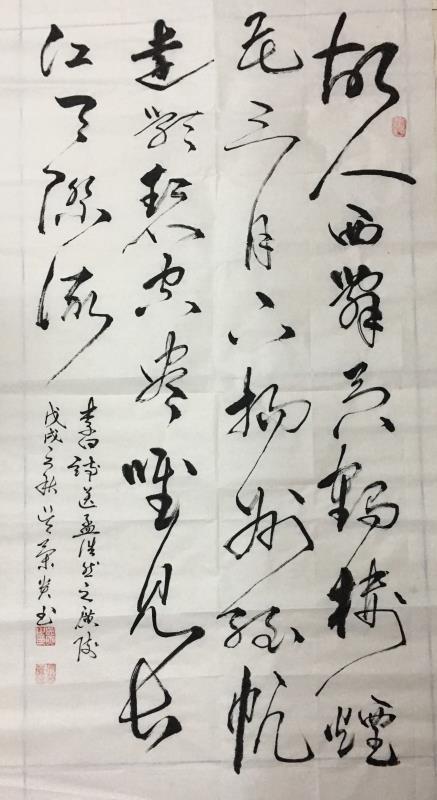 故人西辭黃鶴樓煙
花三月下揚州孤帆
遠影碧空盡唯見長
江天際流
李白詩送孟浩然之廣陵
戊戌之秋